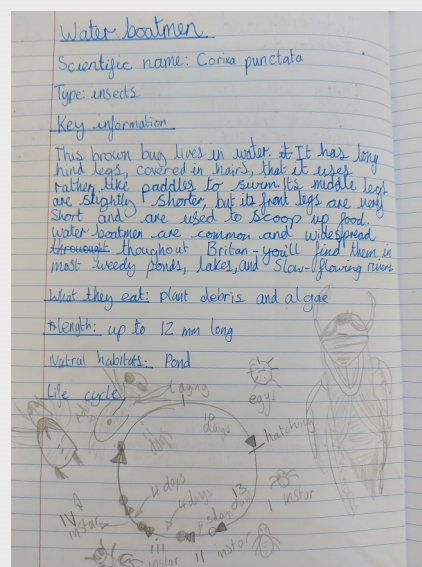 Water boatmen
Scientific name: Corixa punctata
Type: insects
Key information
This brown bug lives in water. It has long
hind legs, covered in hairs, that it uses
rather like paddles to swim. Its middle legs
are slightly shorter, but its front legs are very
short and are used to scoop up food.
Water boatmen are common and widespread
thoughout Britan - you'll find them in
most weedy ponds, lakes, and slow-flowing rivers
What they eat: plant debris and algae
length: up to 12 mm long
Natral habitats: Pond
Life cycle
laying
eggs
10
days
hatching
13
days
I instar
5 days
II instar
4 days
III
instar
4 days
IV
instar
days